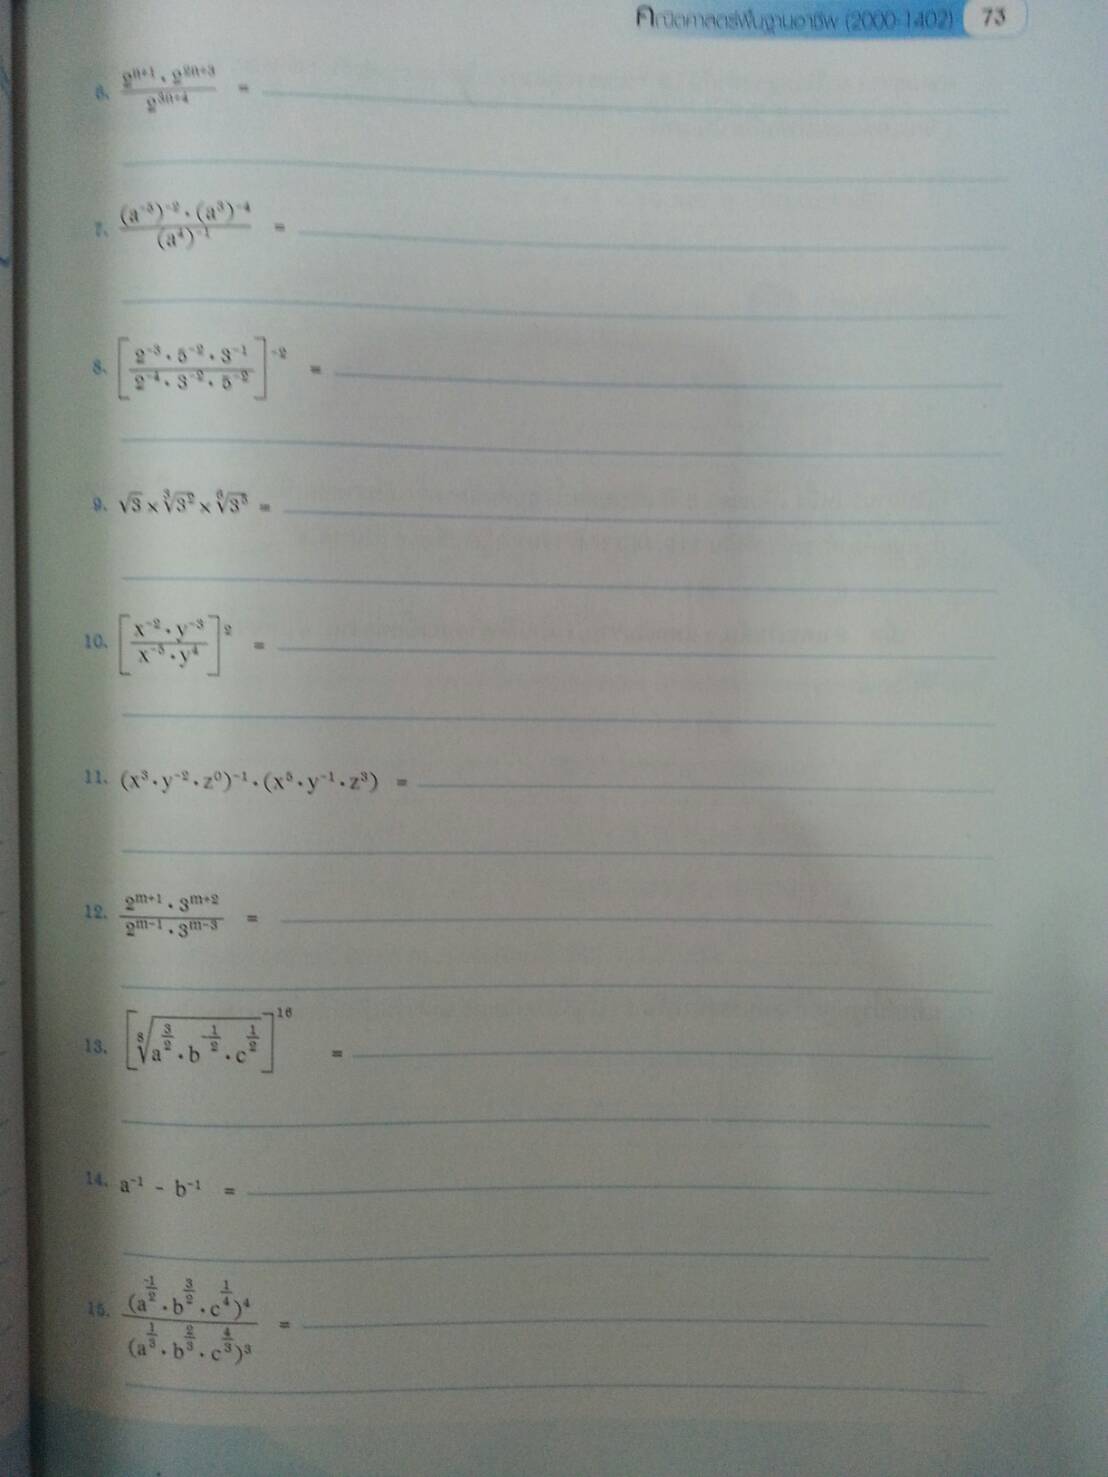 คณิตศาสตร์พื้นฐานอาชีพ (2000-1402) 73
6. \frac{2^{n+1} \cdot 2^{2n+3}}{2^{3n+4}} =
7. \frac{(a^{-3})^{-2} \cdot (a^{3})^{-4}}{(a^{4})^{-1}} =
8. \left[\frac{2^{-3} \cdot 5^{-2} \cdot 3^{-1}}{2^{-4} \cdot 3^{-2} \cdot 5^{-2}}\right]^{-2} =
9. \sqrt{3} \times \sqrt[3]{3^{2}} \times \sqrt[6]{3^{5}} =
10. \left[\frac{x^{-2} \cdot y^{-3}}{x^{-5} \cdot y^{4}}\right]^{2} =
11. (x^{3} \cdot y^{-2} \cdot z^{0})^{-1} \cdot (x^{5} \cdot y^{-1} \cdot z^{3}) =
12. \frac{2^{m+1} \cdot 3^{m+2}}{2^{m-1} \cdot 3^{m-3}} =
13. \left[\sqrt[8]{a^{\frac{3}{2}} \cdot b^{-\frac{1}{2}} \cdot c^{\frac{1}{2}}}\right]^{16} =
14. a^{-1} - b^{-1} =
15. \frac{(a^{\frac{-1}{2}} \cdot b^{\frac{3}{2}} \cdot c^{\frac{1}{4}})^{4}}{(a^{\frac{1}{3}} \cdot b^{\frac{2}{3}} \cdot c^{\frac{4}{3}})^{3}} =